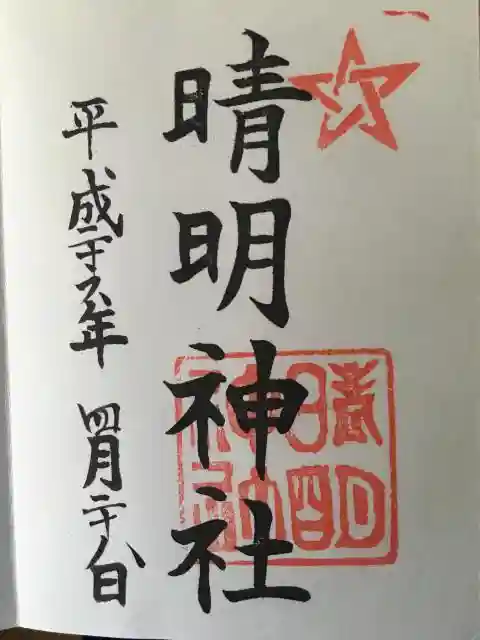 晴明神社
晴明神社
平成二十六年 四月二十八日